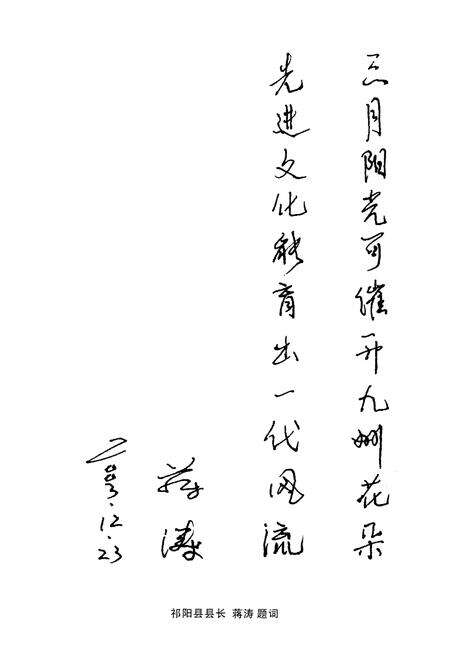 三月阳光可催开九州花朵
先进文化能育出一代风流
蒋涛
二〇〇3.12.23
祁阳县县长 蒋涛 题词